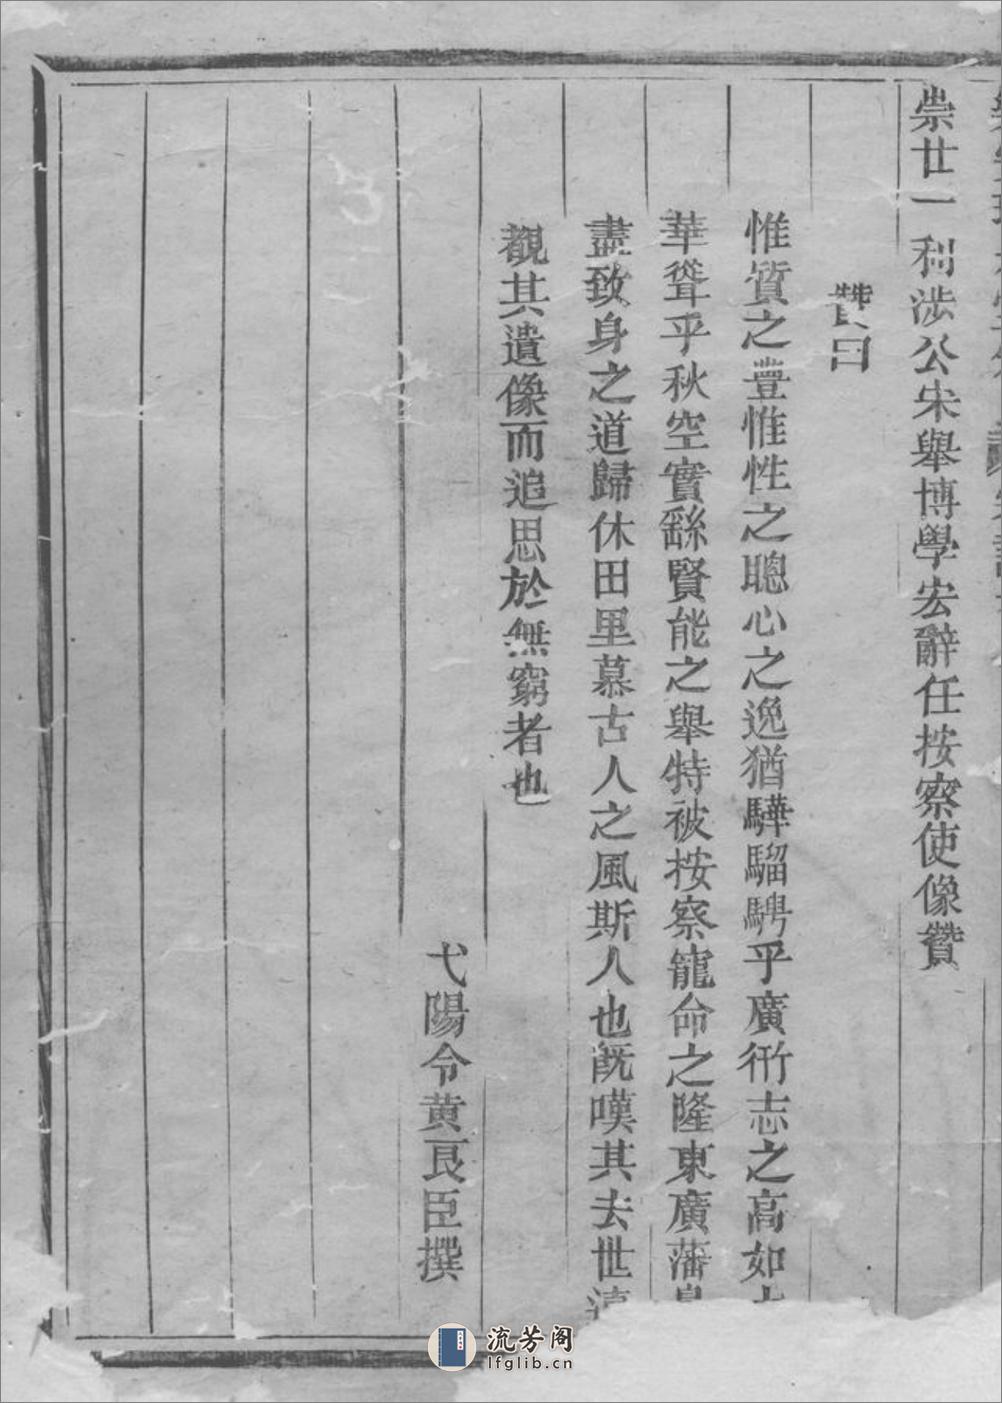 崇廿一利涉公宋舉博學宏辭任按察使像贊
贊曰
惟質之豊惟性之聰心之逸猶驊騮騁乎廣衍志之高如
華聳乎秋空實繇賢能之舉特被按察寵命之隆東廣藩臬
盡致身之道歸休田里慕古人之風斯人也既嘆其去世
觀其遺像而追思於無窮者也
弋陽令黄良臣撰
流芳阁
lfglib.cn